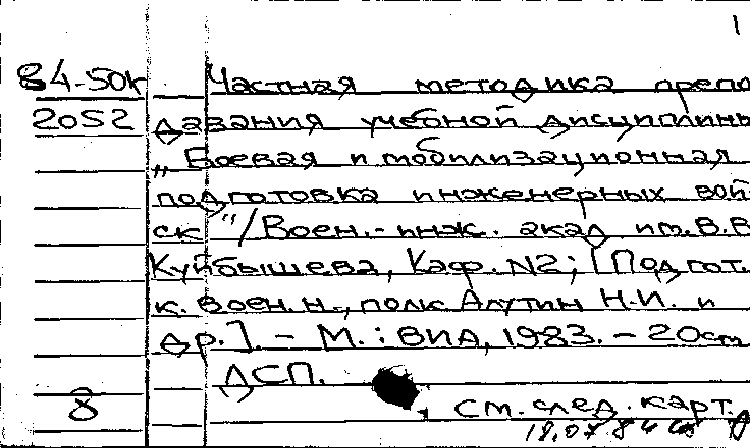 1
84-50к Частная методика препо
2052 давания учебной дисциплины
„Боевая и мобилизационная
подготовка инженерных вой
ск"/Воен.-инж. акад им. В.В
Куйбышева, Каф. N2; [Подгот.
к. воен. н., полк Алутин Н.И. и
др.]. - М.: ВИА, 1983. - 20см
ДСП.
8 см. след. карт.